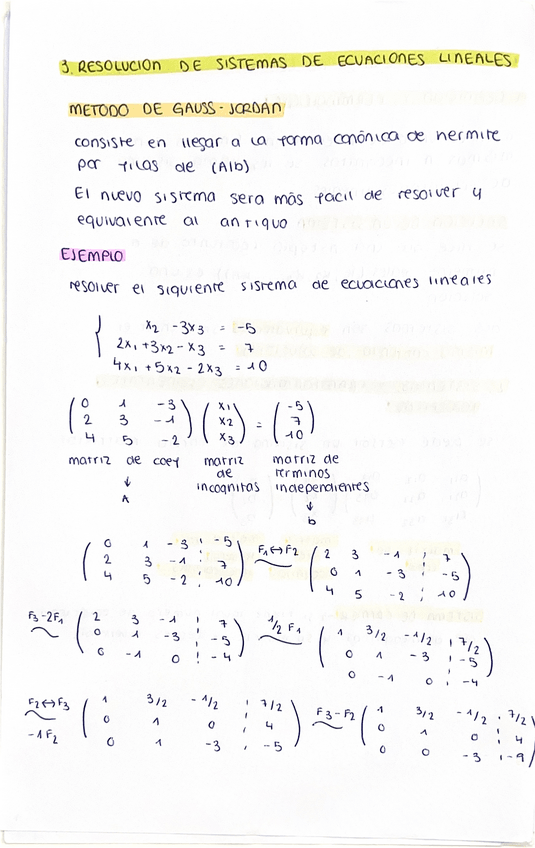 3. RESOLUCION DE SISTEMAS DE ECUACIONES LINEALES
METODO DE GAUSS-JORDAN
consiste en llegar a la forma canónica de hermite
por filas de (A|b)
El nuevo sistema sera más facil de resolver y
equivalente al antiguo
EJEMPLO
resolver el siguiente sistema de ecuaciones lineales
x2 - 3x3 = -5
2x1 + 3x2 - x3 = 7
4x1 + 5x2 - 2x3 = 10
0 1 -3 x1 -5
2 3 -1 x2 = 7
4 5 -2 x3 10
matriz de coef matriz matriz de
↓ de terminos
A incognitas independientes
↓
b
0 1 -3 -5 F1↔F2 2 3 -1 7
2 3 -1 7 ~ 0 1 -3 -5
4 5 -2 10 4 5 -2 10
F3-2F1 2 3 -1 7 1/2 F1 1 3/2 -1/2 7/2
~ 0 1 -3 -5 ~ 0 1 -3 -5
0 -1 0 -4 0 -1 0 -4
F2↔F3 1 3/2 -1/2 7/2 F3-F2 1 3/2 -1/2 7/2
~ 0 1 0 4 ~ 0 1 0 4
-1F2 0 1 -3 -5 0 0 -3 -9